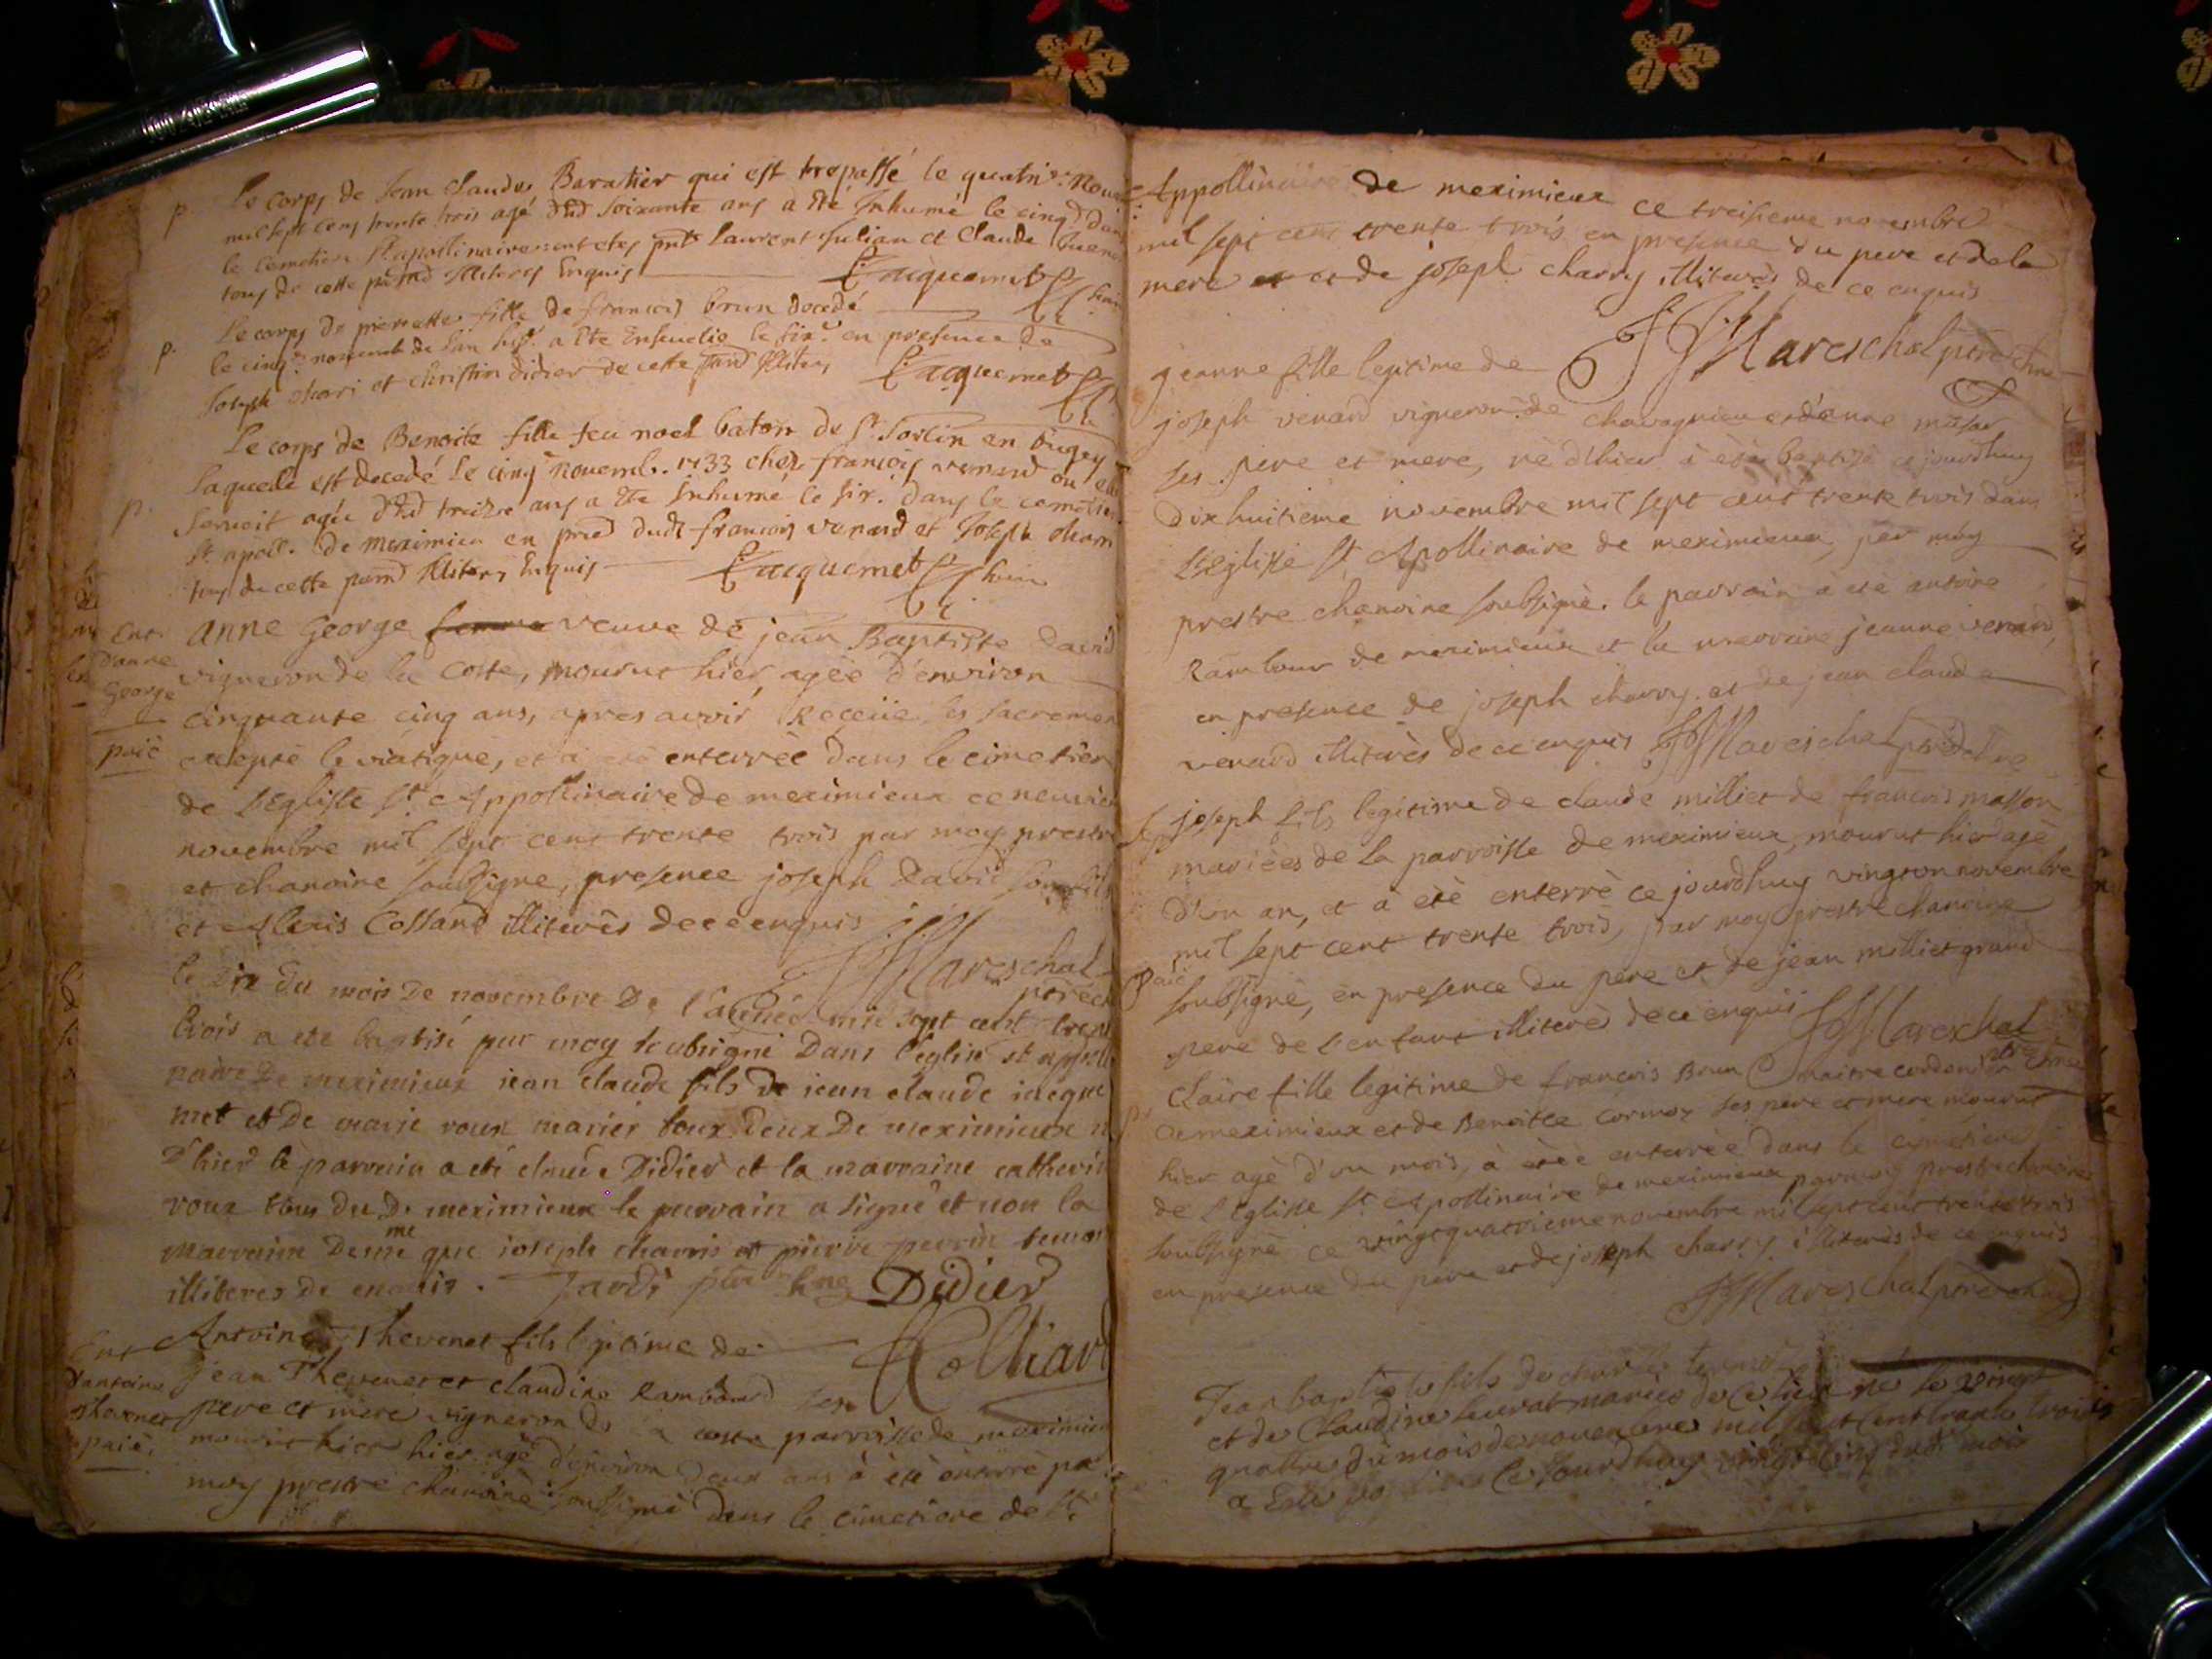 Le corps de Jean Claude Baratier qui est trepassé le quatri.e Nove
mil sept cens trente trois agé soixante ans a Eté Inhumé le cinq dans
le cemetiere St apollinaire Laurent Julian et Claude
tous de cette Illiterés Enquis Jacquemet
p.
Le corps de pierrette fille de francois brun decedé
le cinq.e novemb de l'an a Ete Ensevelie le six.e en presence de
Joseph chari et christin didier de cette Illiter Jacquemet
p.
Le corps de Benoite fille feu noel baton de St Sorlin en bugey
laquelle est decedé le cinq novemb. 1733 chez francois venard ou elle
servoit agée treize ans a Ete Inhumé le six.e dans le cemetier
p.
St apoll. de Meximieu en dudt francois venard et Joseph charri
tous de cette Illiterés Enquis Jacquemet
anne George femme veuve de jean Baptiste David
vigneron de la Coste, mourut hier, agée d'environ
cinquante cinq ans, apres avoir Receüe les sacremen
excepté le viatique, et a eté enterrée dans le cimetier
de l'Eglisse St Appollinaire de meximieux ce neuvie
novembre mil sept cent trente trois par moy prestre
et chanoine soubsigné, presence joseph David son fils
et Alexis Colland illiterès de ce enquis
JJMareschal
Ent
d'anne
George
paié
le dix du mois de novembre de l'année mil sept cent trente
trois a ete baptisé par moy soubsigné Dans l'église st apolli
naire De meximieux jean claude fils de jean claude jacque
met et de marie roux mariés tous deux De meximieux né
D'hier le parrain a eté claude Didier et la marraine catherin
roux tous du d. meximieux le parrain a signé et non la
marraine De me que joseph charris et pierre perrin temoin
illiteres de enquis. Jardi ptre Chne Didier
Colliard
Antoine Thevenet fils legitime de
jean Thevenet et claudine Rambaud ses
pere et mere vigneron de la coste parroisse de meximieu
mourut hier hier agé d'environ deux ans à eté enterré par
moy prestre chanoine soussigné dans le cimetiere de St
Ent
d'antoine
thevenet
paié
Appollinaire de meximieux ce treisieme novembre
mil sept cent trente trois en presence du pere et de la
mere et et de joseph charry illiterès de ce enquis
JJMareschal ptre Chne
jeanne fille legitime de
joseph venard vigneron de chavagnieu et d'anne
ses pere et mere, né d'hier à été baptisé ce jourdhuy
Dixhuitieme novembre mil sept cent trente trois dans
l'Eglisse St Apollinaire de meximieux, par moy
prestre chanoine soubsigné. le parrain à eté antoine
Rambour de meximieux et la marraine jeanne venard,
en presence de joseph charry. et de jean claude
venard illiterès de ce enquis JJMareschal
joseph fils legitime de claude milliet de francois masson
mariées de la parroisse de meximieux, mourut hier agé
d'un an, et à eté enterré ce jourdhuy vingt on novembre
mil sept cent trente trois, par moy prestre chanoine
soubsigné, en presence du pere et de jean milliet grand
pere de l'enfant illiteré de ce enquis JJMareschal
paié
Claire fille legitime de francois Brun maitre cordonier
de meximieux et de Benoitte Cormoz ses pere et mere mourut
hier agé d'un mois, à etée enterrée dans le cimetiere
de l'Eglisse St Appollinaire de meximieux par moy prestre chanoine
soubsigné ce vingtquatrieme novembre mil sept cent trente trois
en presence du pere et de joseph charry illiterès de ce enquis
JJMareschal ptre chne
Jean baptiste fils de
et de Claudine mariés de ce lieu né le vingt
quattre du mois de novembre mil sept cent trante trois
a Este ce Jourdhuy vingt cinq dudt mois